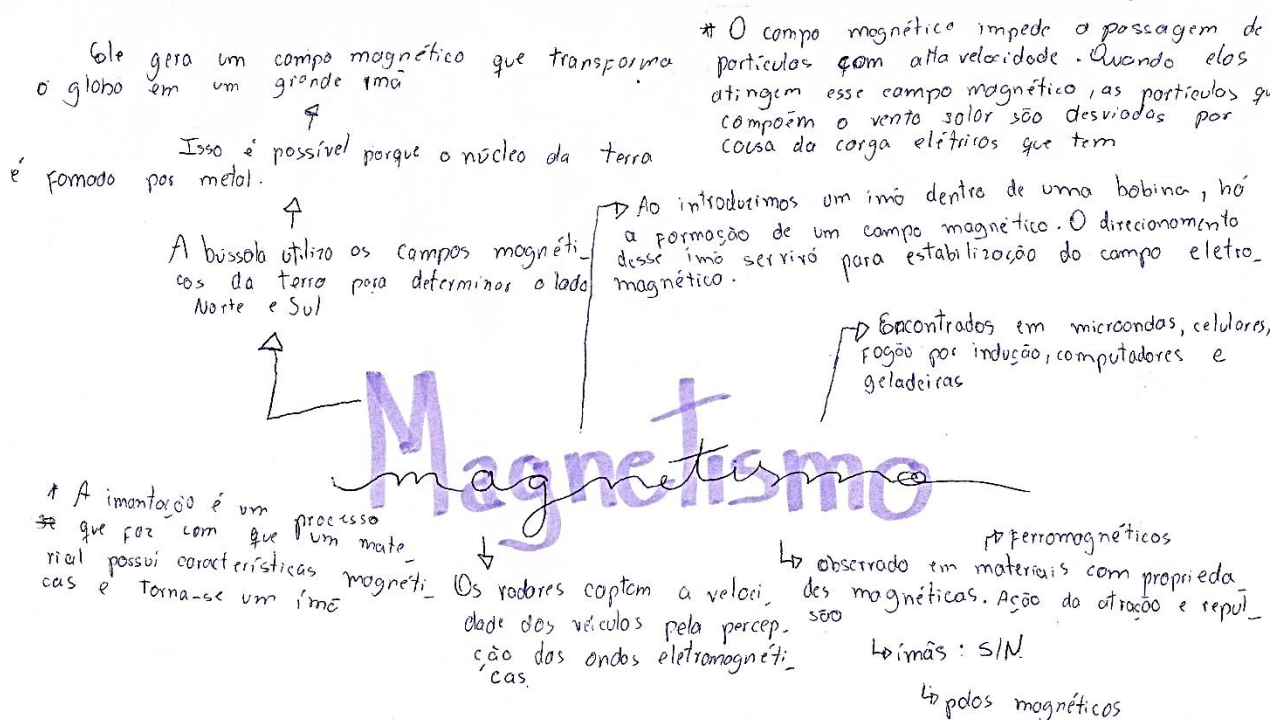 Ele gera um campo magnético que transforma
o globo em um grande imã
Isso é possível porque o núcleo da terra
é fomado por metal.
A bússola utiliza os campos magnéti_
cos da terra para determinar o lado
Norte e Sul
* O campo magnético impede a passagem de
partículas com alta velocidade. Quando elas
atingem esse campo magnético, as partículas qu
compoêm o vento solar são desviadas por
causa da carga elétricos que tem
Ao introduzimos um imã dentro de uma bobina, há
a formação de um campo magnético. O direcionamento
desse imã servirá para estabilização do campo eletro_
magnético.
Encontrados em microondas, celulares,
fogão por indução, computadores e
geladeiras
Magnetismo
magnetismo
* A imantação é um processo
que faz com que um mate_
rial possui características magnéti_
cas e torna-se um ímã
Os radares captam a veloci_
dade dos veículos pela percep_
ção das ondas eletromagnéti_
cas.
ferromagnéticos
observado em materiais com proprieda_
des magnéticas. Ação da atração e repul_
são
ímãs: S/N
polos magnéticos